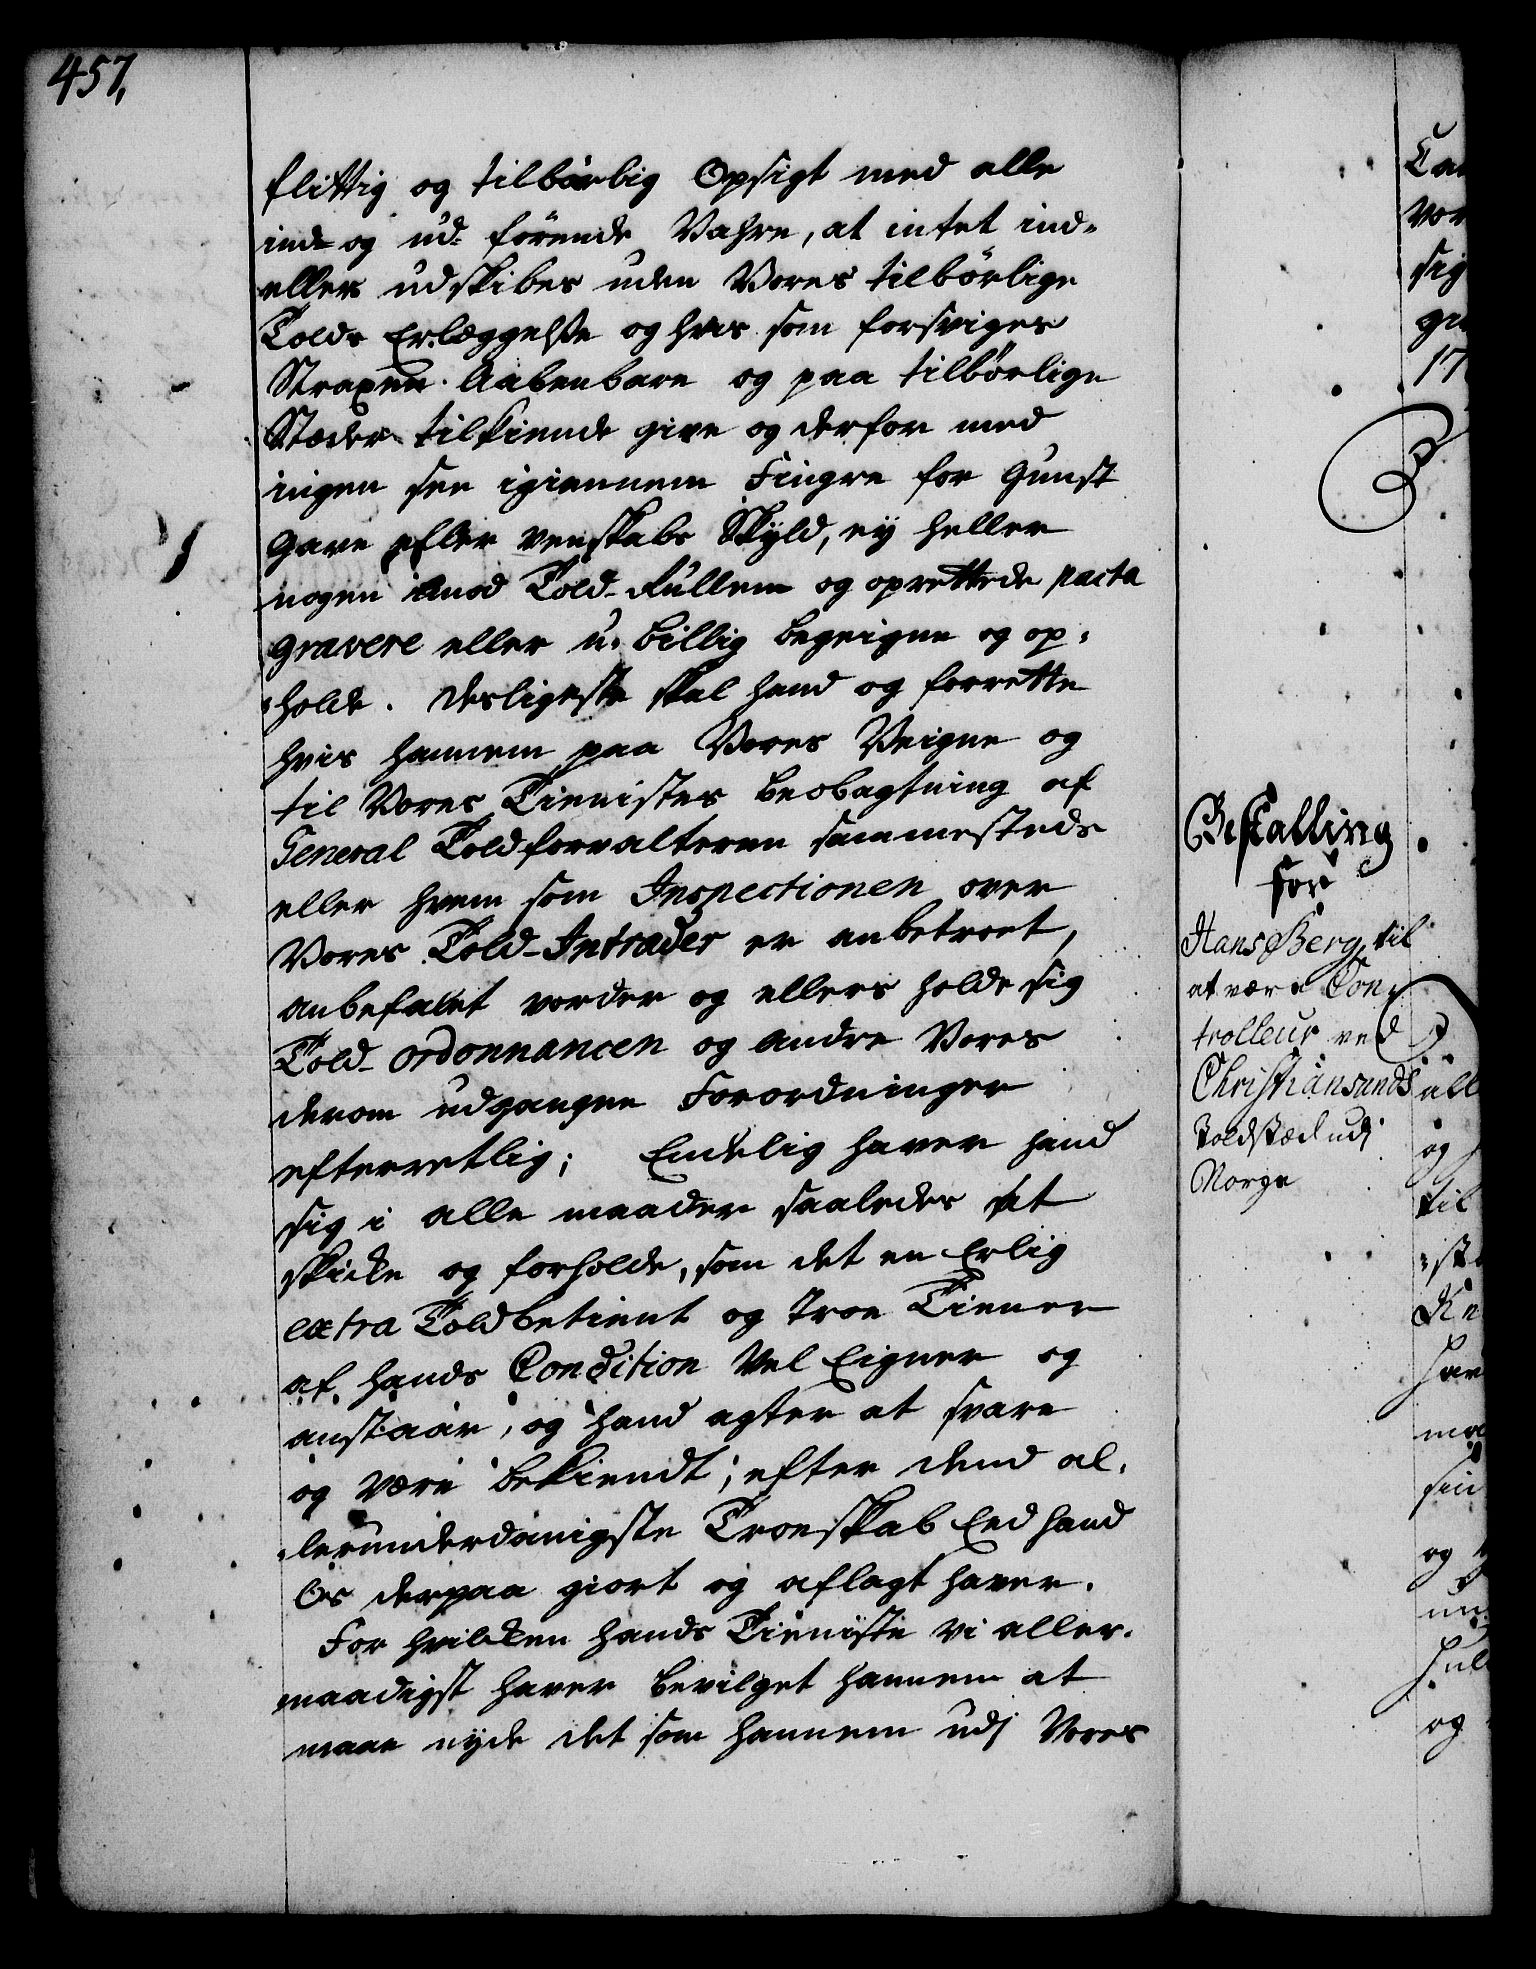 457,
flittig og tilbørlig Opsigt med alle
ind- og ud- førende Vahre, at intet ind-
eller udskibes uden Vores tilbørlige
Tolds Erlæggelse og hvis som forsviges
Straxen Aabenbare og paa tilbørlige
Stæder tilkiende give og derfor med
ingen see igiennem Fingre for Gunst
Gave eller Venskabs Skyld, ey heller
nogen imod Told-Rullem og oprettede pacta
gravere eller u-billig begeigne og op-
holde. Desligeste skal hand og forrette
hvis hannem paa Vores Veigne og
til Vores Tienistes beobagtning af
General Toldforvalteren sammesteds
eller hvem som Inspectionen over
Vores Told-Intrader er anbetroet,
anbefalet vorder og ellers holde sig
Told-ordonnancen og andre Vores
derom udgangne Forordninger
efterretlig; Endelig haver hand
sig i alle maader saaledes at
skicke og forholde, som det en Erlig
extra Toldbetient og Troe Tiener
af hands Condition Vel Eigner og
anstaar, og hand agter at svare
og være bekiendt; efter dend al-
lerunderdanigste Troeskab Eed hand
Os derpaa giort og aflagt haver.
For hvilcken hands Tieniste vi aller-
naadigst haver bevilget hannem at
maae nyde det som hannem udj Vores
Bestalling
for
Hans Berg til
at være Con-
trolleur ved
Christiansands
Toldsted udj
Norge